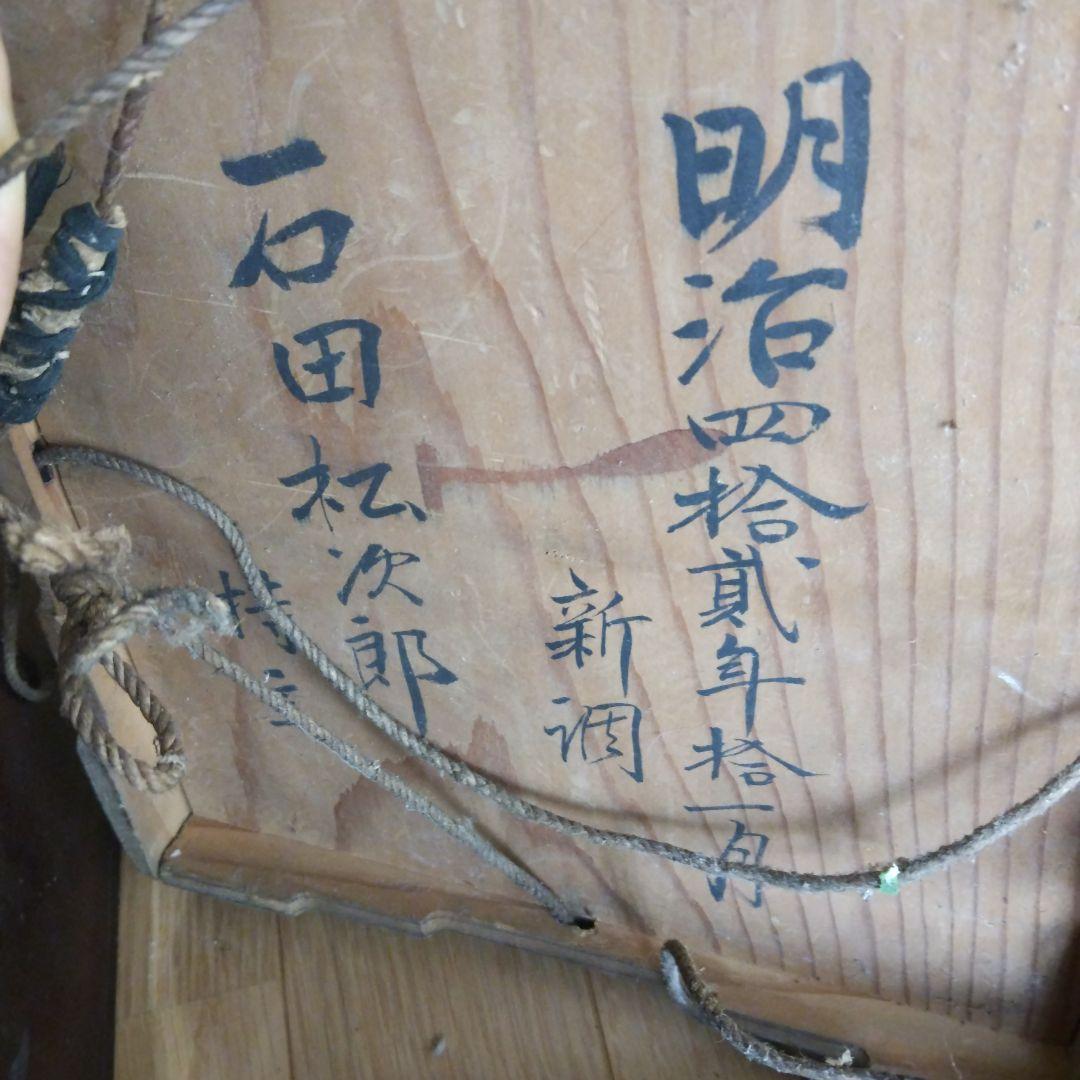 明治四拾貳年拾一月
新調
石田松次郎
持主